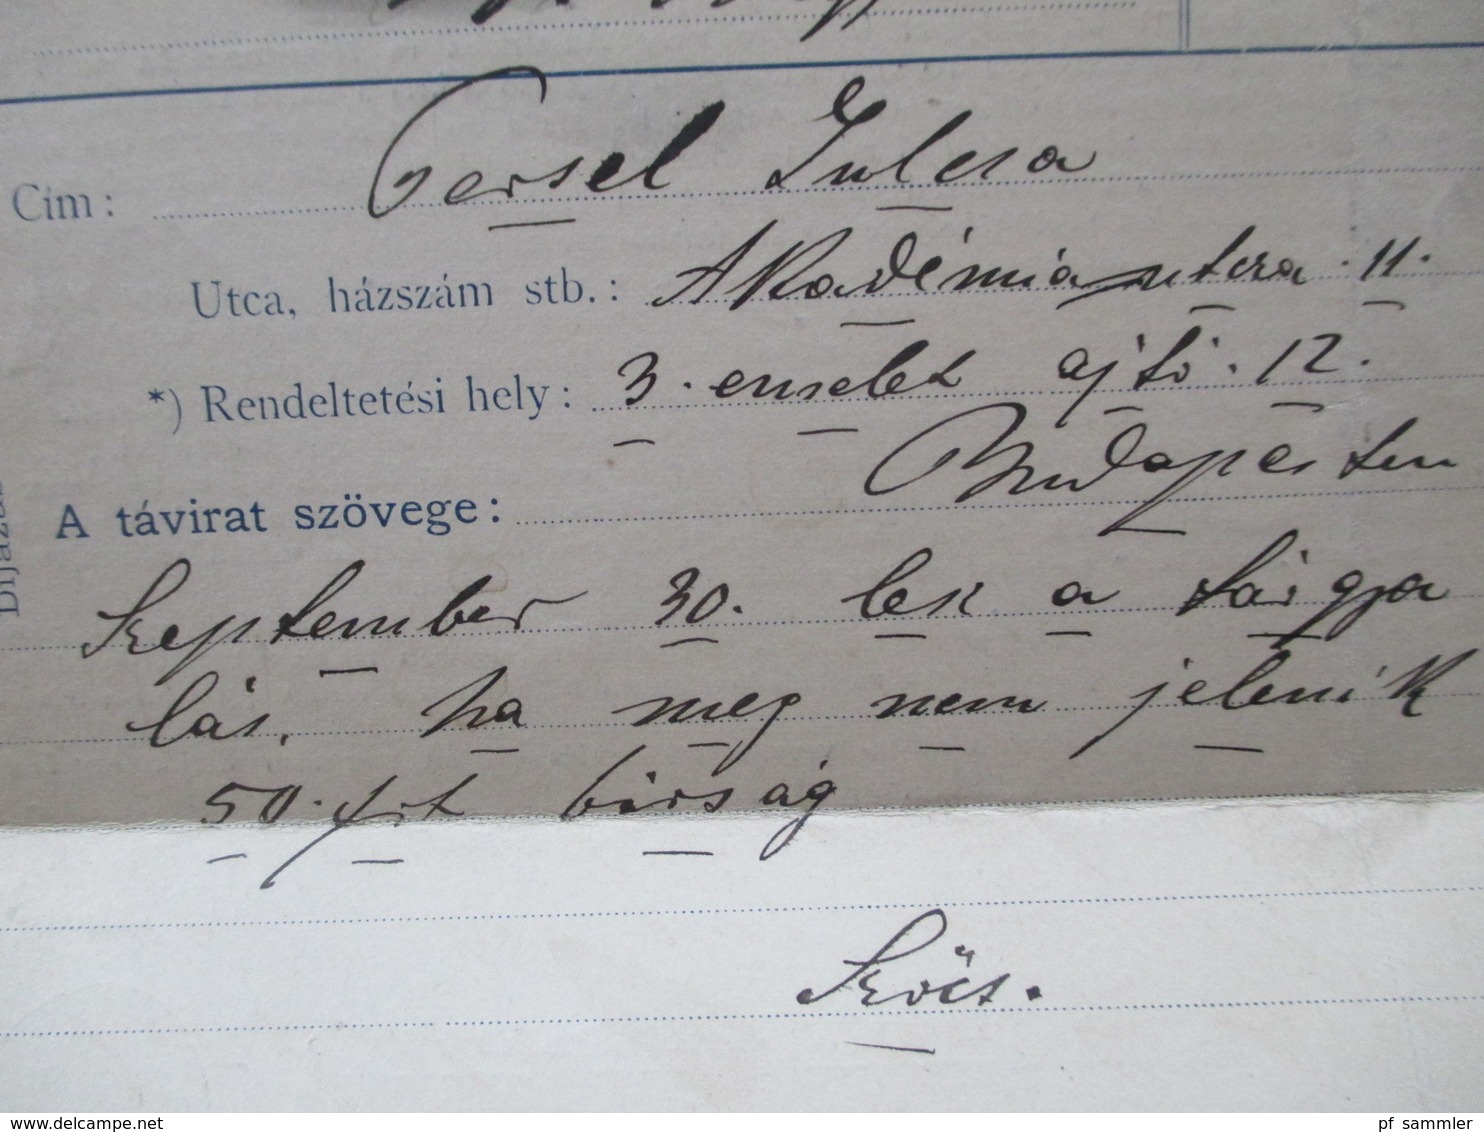 Cím: Persel Julcsa
Utca, házszám stb.: Akadémia utcza 11.
*) Rendeltetési hely: 3. emelet ajtó. 12.
Budapesten
A távirat szövege:
Szeptember 30. lesz a tárgya
lás, ha meg nem jelenik
50. frt birság
Szőcs.
www.delcampe.net
pf_sammler